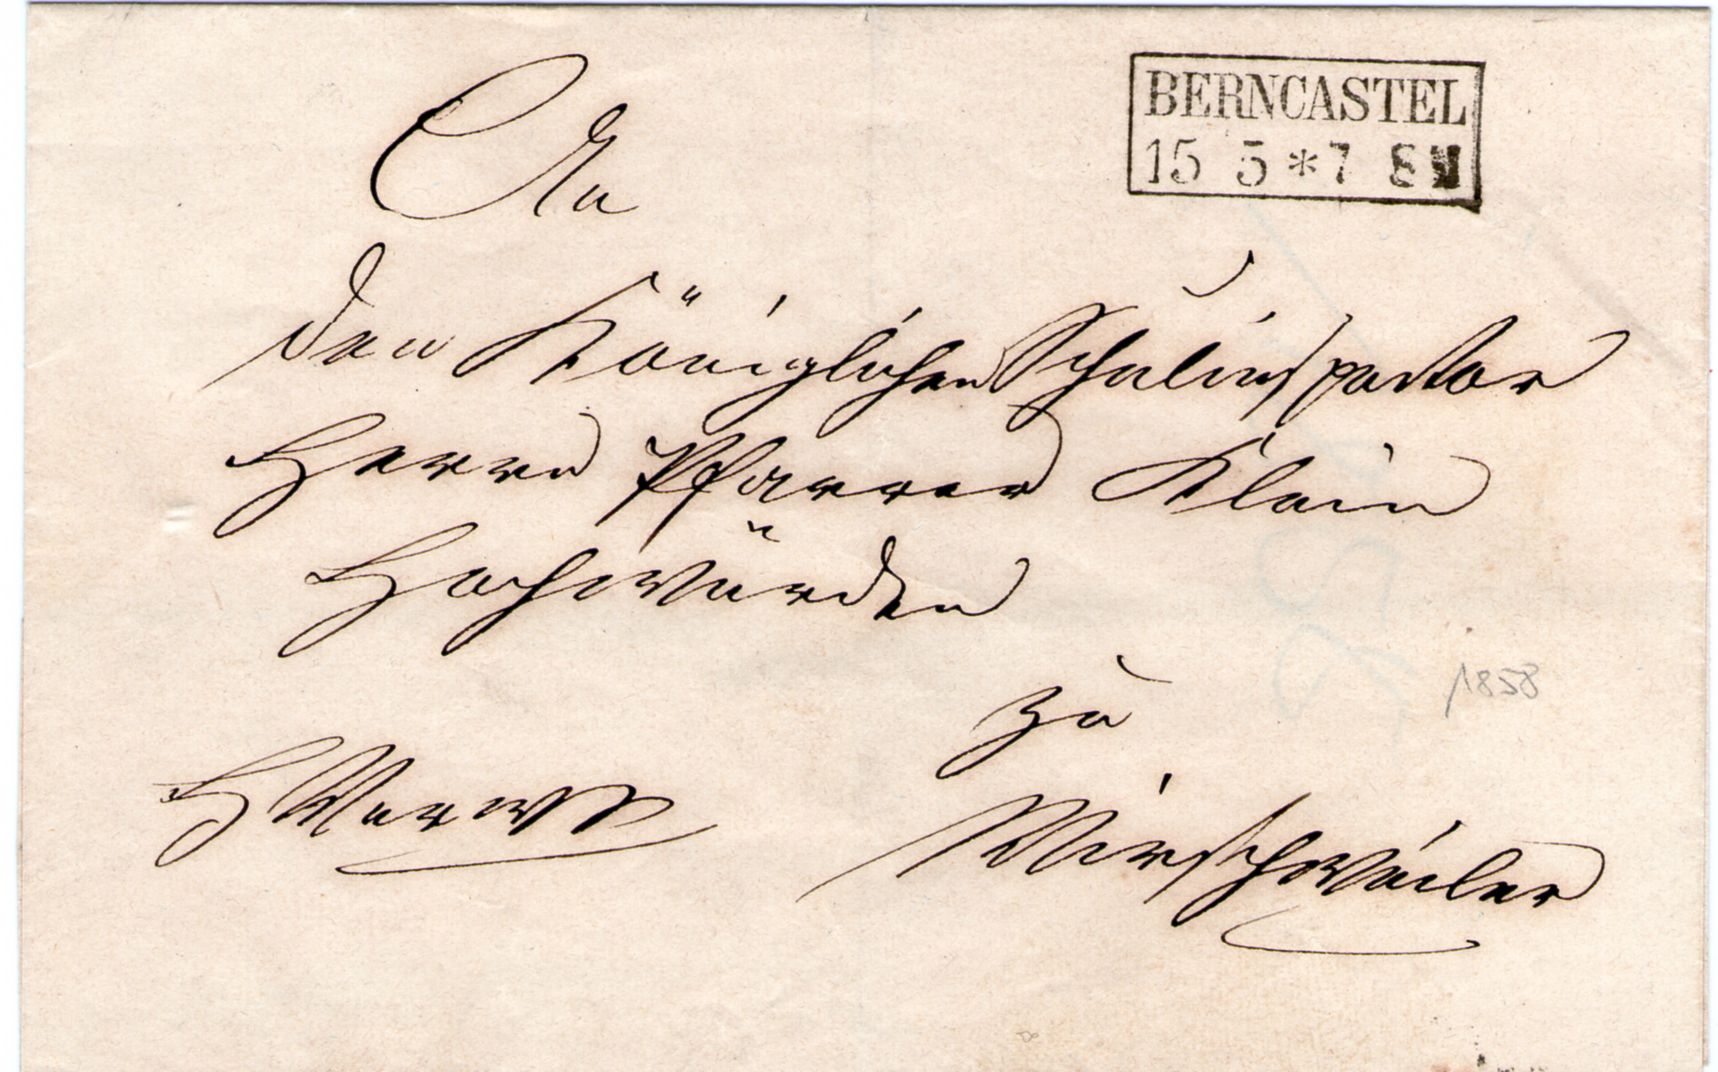 BERNCASTEL
15 5 * 7 8
An
den Königlichen Schulinspector
Herrn Pfarrer Klein
Hochwürden
zu
1858
Wirschweiler